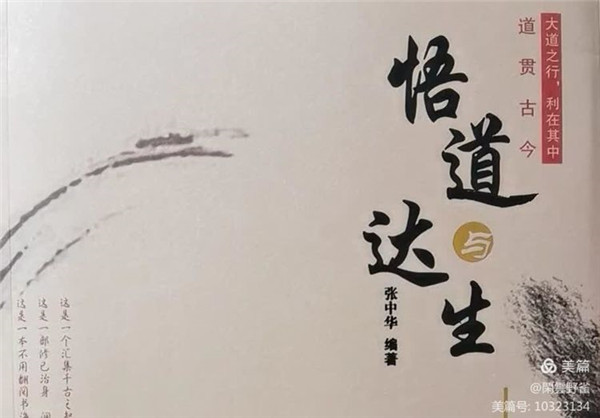 大道之行，利在其中
道贯古今
悟道
与
达生
张中华 编著
这是一个汇集千古之
这是一部修已治身
这是一本不用翻阅书
美篇
美篇号: 10323134